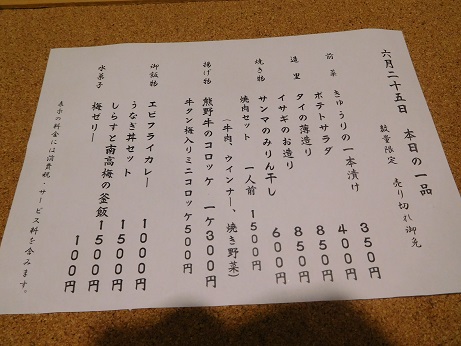 六月二十五日 本日の一品
数量限定 売り切れ御免
前菜 きゅうりの一本漬け 350円
ポテトサラダ 400円
造里 タイの薄造り 850円
イサギのお造り 850円
焼き物 サンマのみりん干し 600円
焼肉セット 一人前 1500円
(牛肉、ウインナー、焼き野菜)
揚げ物 熊野牛のコロッケ 一ケ300円
牛タン梅入りミニコロッケ500円
御飯物 エビフライカレー 1000円
うなぎ丼セット 1500円
しらすと南高梅の釜飯 1500円
水菓子 梅ゼリー 100円
表示の料金には消費税・サービス料を含みます。